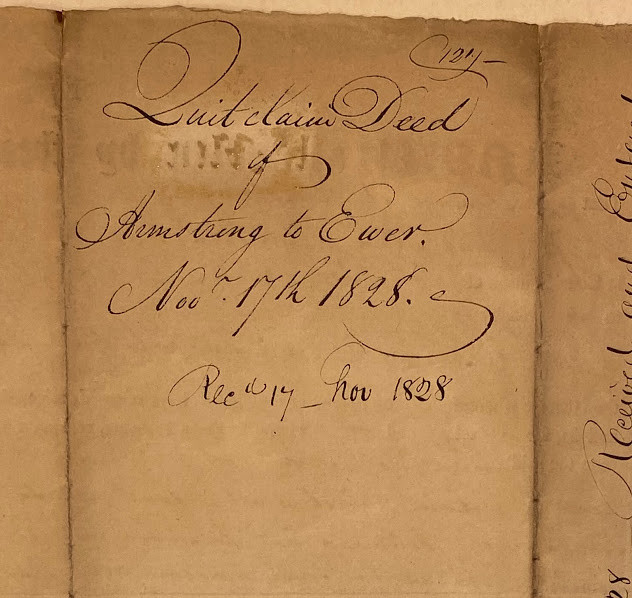 127
Quit claim Deed
of
Armstrong to Ewer.
Novr. 17th 1828.
Recd 17 - Nov 1828
Received and
28